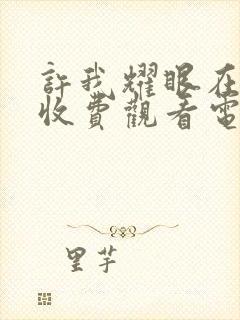 許我耀眼在
收費觀看電
里芋